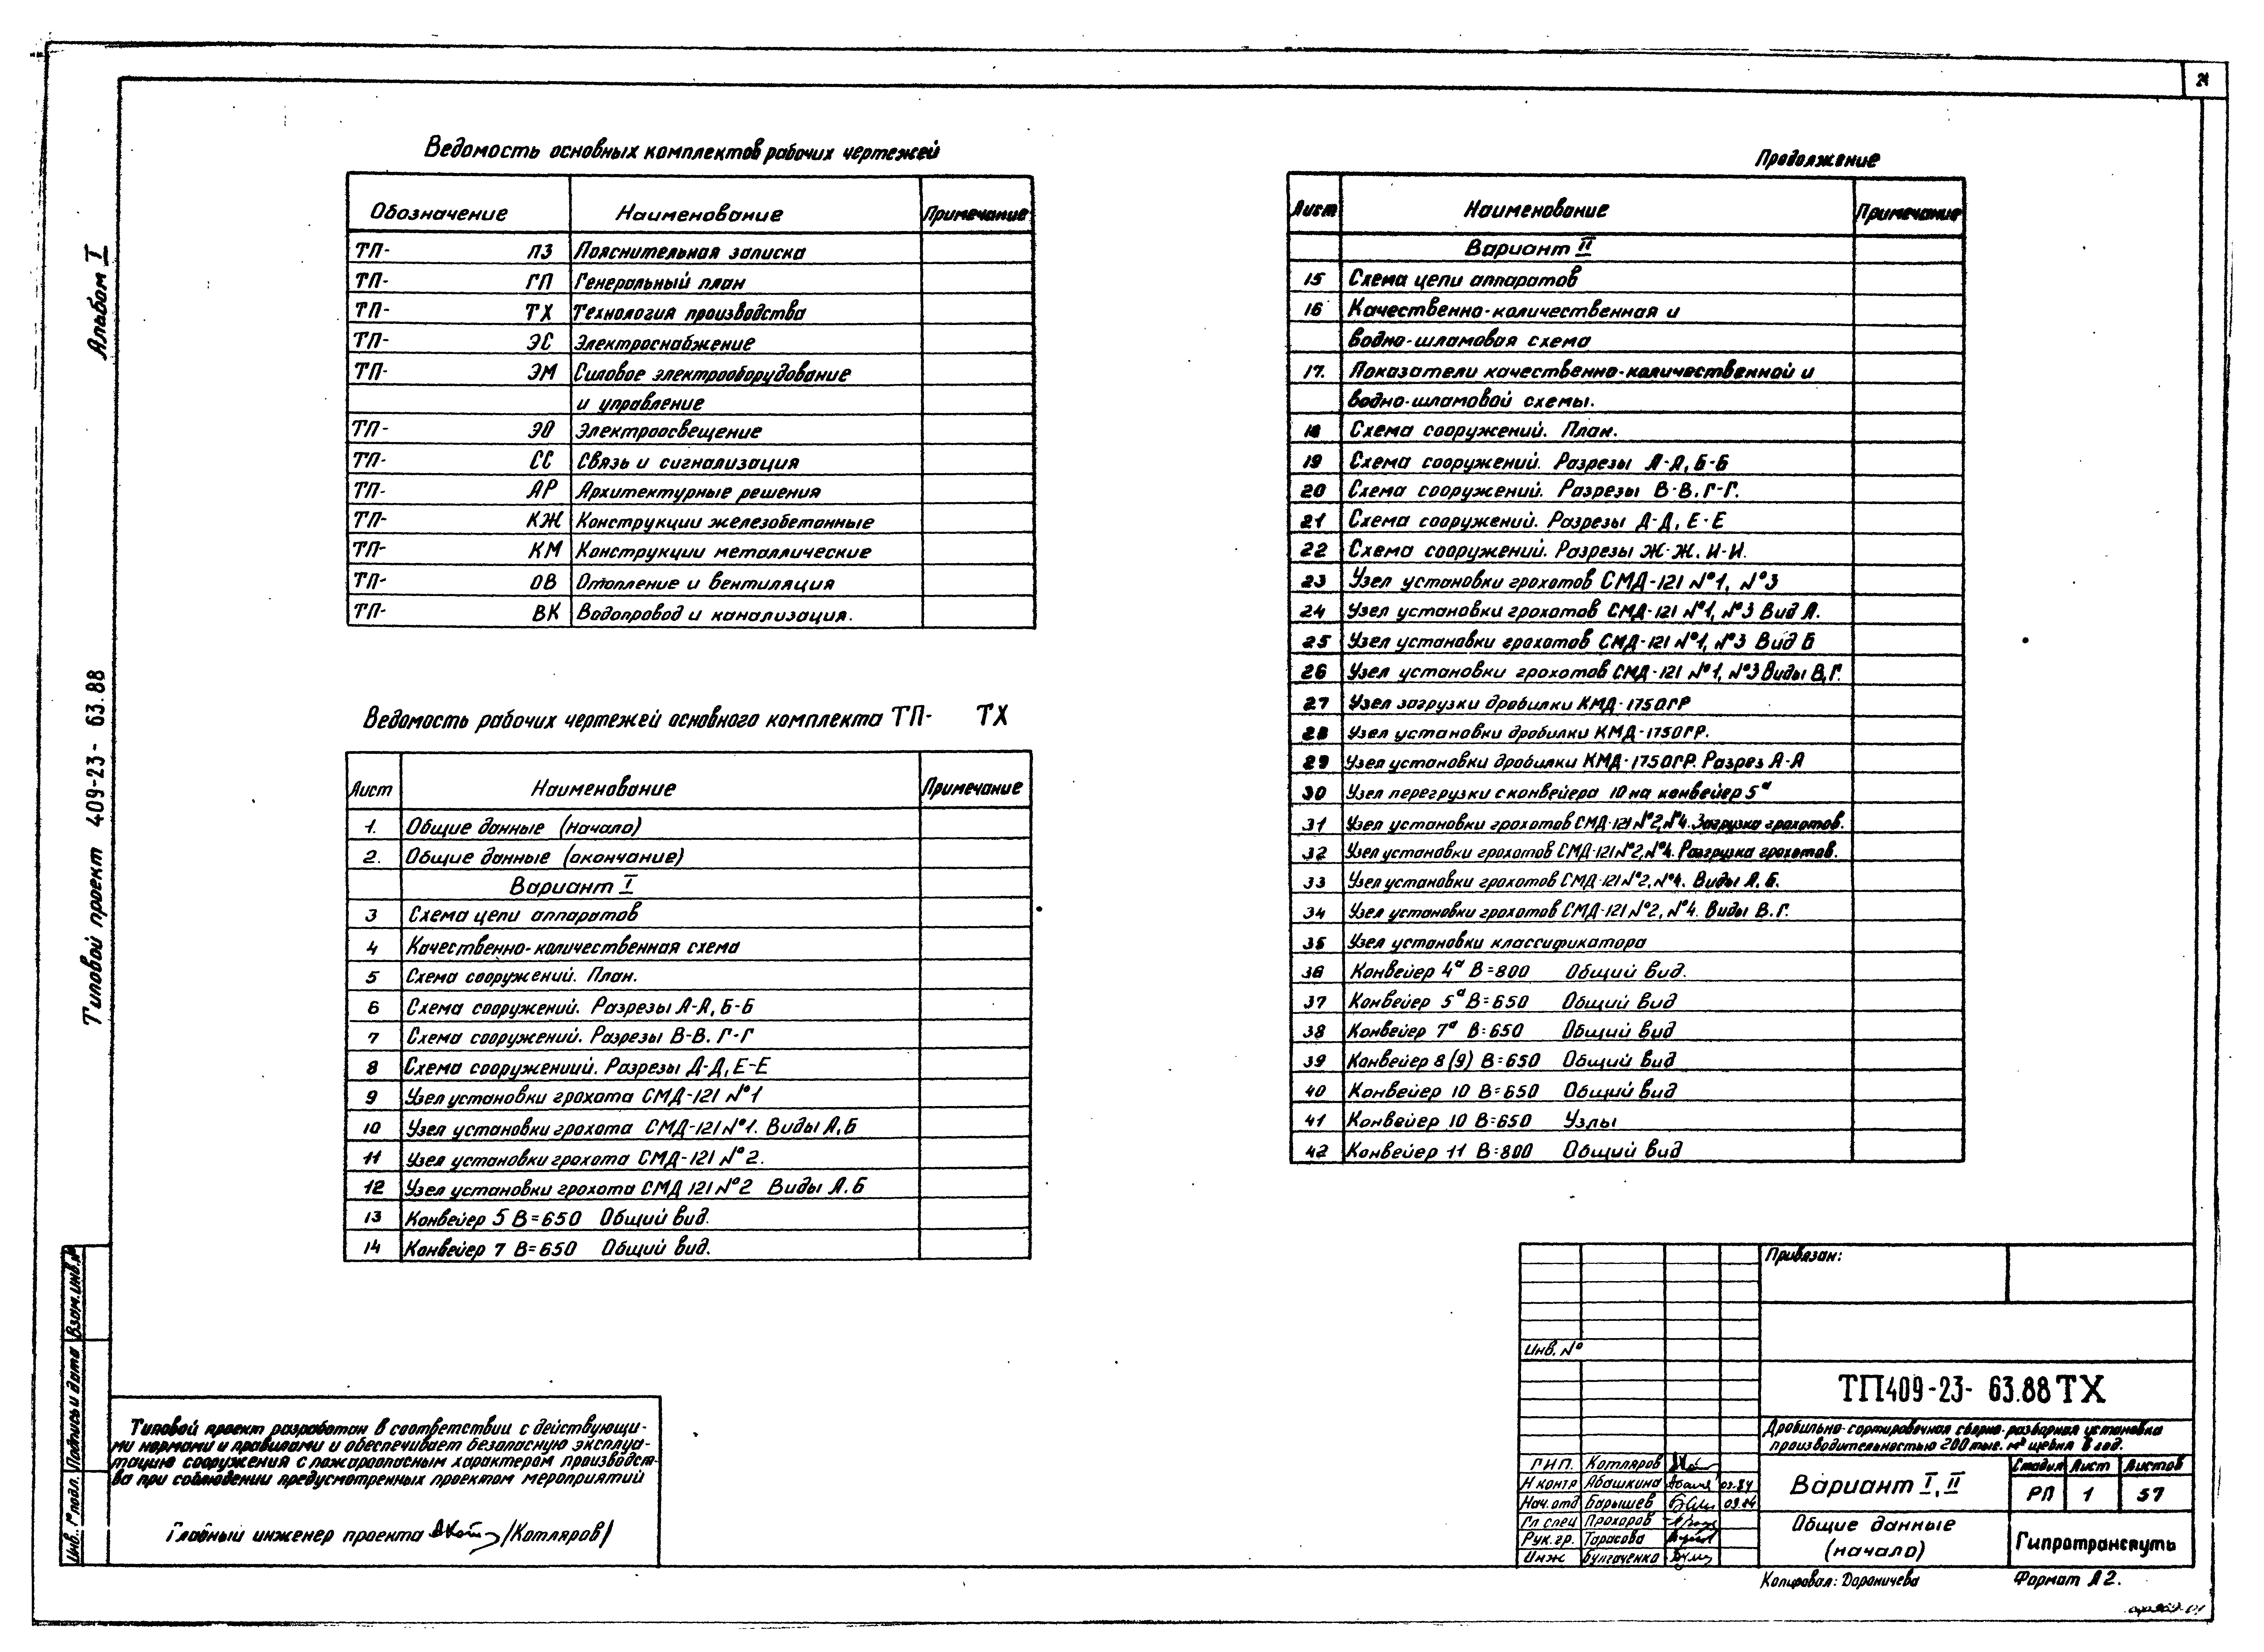 21
Альбом I
Типовой проект 409-23- 63.88
Ведомость основных комплектов рабочих чертежей
Обозначение Наименование Примечание
ТП- ПЗ Пояснительная записка
ТП- ГП Генеральный план
ТП- ТХ Технология производства
ТП- ЭС Электроснабжение
ТП- ЭМ Силовое электрооборудование
и управление
ТП- ЭО Электроосвещение
ТП- СС Связь и сигнализация
ТП- АР Архитектурные решения
ТП- КЖ Конструкции железобетонные
ТП- КМ Конструкции металлические
ТП- ОВ Отопление и вентиляция
ТП- ВК Водопровод и канализация.
Ведомость рабочих чертежей основного комплекта ТП- ТХ
Лист Наименование Примечание
1. Общие данные (начало)
2. Общие данные (окончание)
Вариант I
3 Схема цепи аппаратов
4 Качественно-количественная схема
5 Схема сооружений. План.
6 Схема сооружений. Разрезы А-А, Б-Б
7 Схема сооружений. Разрезы В-В. Г-Г
8 Схема сооружениий. Разрезы Д-Д, Е-Е
9 Узел установки грохота СМД-121 №1
10 Узел установки грохота СМД-121 №1. Виды А,Б
11 Узел установки грохота СМД-121 №2.
12 Узел установки грохота СМД 121 №2 Виды А.Б
13 Конвейер 5 В=650 Общий вид.
14 Конвейер 7 В=650 Общий вид.
Продолжение
Лист Наименование Примечание
Вариант II
15 Схема цепи аппаратов
16 Качественно-количественная и
водно-шламовая схема
17. Показатели качественно-количественной и
водно-шламовой схемы.
18 Схема сооружений. План.
19 Схема сооружений. Разрезы А-А, Б-Б
20 Схема сооружений. Разрезы В-В. Г-Г.
21 Схема сооружений. Разрезы Д-Д, Е-Е
22 Схема сооружений. Разрезы Ж-Ж. И-И.
23 Узел установки грохотов СМД-121 №1, №3
24 Узел установки грохотов СМД-121 №1, №3 Вид А.
25 Узел установки грохотов СМД-121 №1, №3 Вид Б
26 Узел установки грохотов СМД-121 №1, №3 Виды В,Г.
27 Узел загрузки дробилки КМД-1750ГР
28 Узел установки дробилки КМД-1750ГР.
29 Узел установки дробилки КМД-1750ГР. Разрез А-А
30 Узел перегрузки с конвейера 10 на конвейер 5а
31 Узел установки грохотов СМД-121 №2, №4. Загрузка грохотов.
32 Узел установки грохотов СМД-121 №2, №4. Разгрузка грохотов.
33 Узел установки грохотов СМД-121 №2, №4. Виды А. Б.
34 Узел установки грохотов СМД-121 №2, №4. Виды В.Г.
35 Узел установки классификатора
36 Конвейер 4а В=800 Общий вид.
37 Конвейер 5а В=650 Общий вид
38 Конвейер 7а В=650 Общий вид
39 Конвейер 8(9) В=650 Общий вид
40 Конвейер 10 В=650 Общий вид
41 Конвейер 10 В=650 Узлы
42 Конвейер 11 В=800 Общий вид
Взам.инв.№
Подпись и дата
Инв. № подл.
Типовой проект разработан в соответствии с действующи-
ми нормами и правилами и обеспечивает безопасную эксплуа-
тацию сооружения с пожароопасным характером производст-
ва при соблюдении предусмотренных проектом мероприятий
Главный инженер проекта /Котляров/
Привязан:
Инв. №
ТП409-23- 63.88 ТХ
Дробильно-сортировочная сборно-разборная установка
производительностью 200 тыс. м³ щебня в год.
ГИП. Котляров
Н контр Абашкина
Нач.отд Барышев
Гл спец Прохоров
Рук.гр. Тарасова
Инж Булгаченко
Вариант I, II
Стадия Лист Листов
РП 1 57
Общие данные
(начало)
Гипротранспуть
Копировал: Дораничева Формат А2.